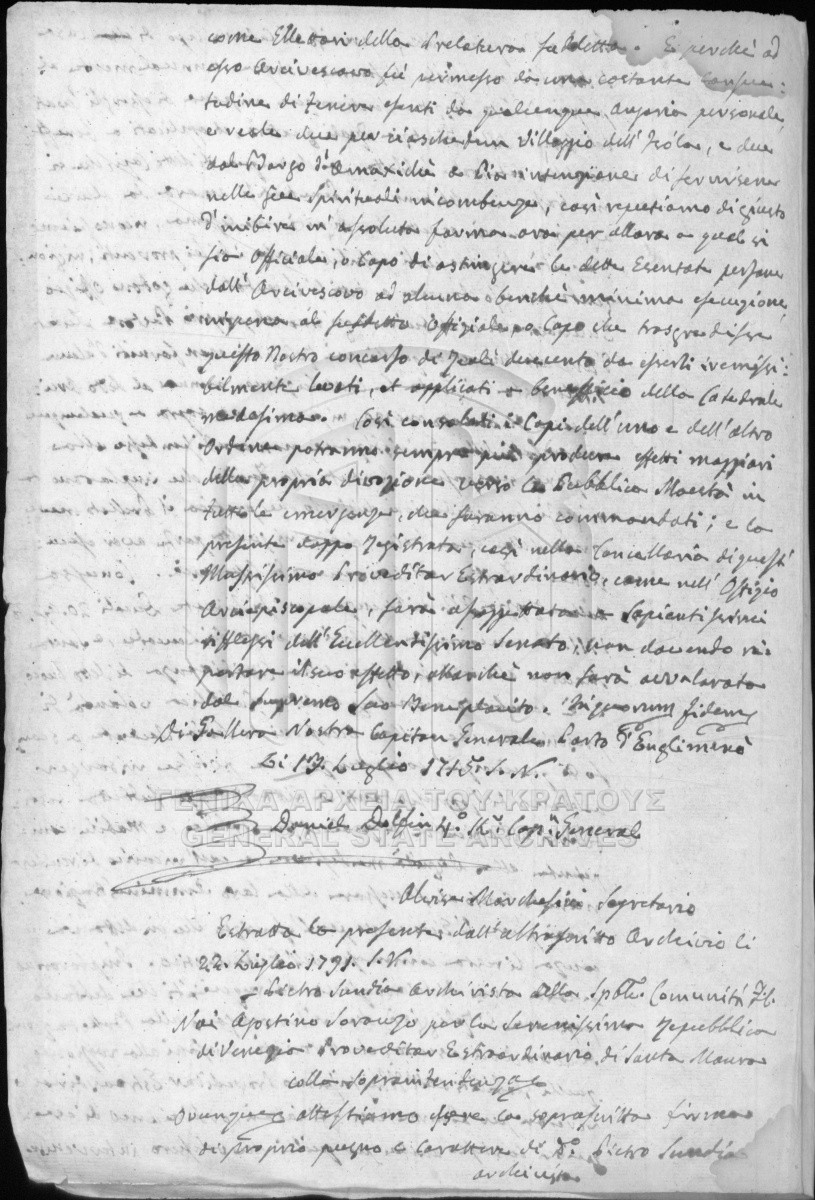 come Elettori della Prelatura suddetta. E perchè ad
esso Arcivescovo fù permesso da una costante consue:
tudine di tenere esenti da qualunque angaria personale,
e reale due per ciaschedun Villaggio dell'Isola, e due
dal Borgo d'Amaxichi a Pia intenzione di servirsene
nelle sue Spirituali incombenze, così reputiamo di giusto
d'inibire in assoluta forma ora per allora a qual si
sia Officiale, o Capo di astringere le dette Esentate persone
dall'Arcivescovo ad alcuna benchè minima esecuzione,
in pena al suddetto Offiziale o Capo che trasgredisse
questo Nostro concorso di Reali duecento da esserli iremissi:
bilmente levati, et applicati a beneficio della Catedrale
medesima. Così consolati i Capi dell'uno e dell'altro
Ordine potranno sempre più produr effetti maggiori
della propria divozione verso la Pubblica Maestà in
tutte le emergenze, che saranno commandati; e la
presente doppo registrata, così nella Cancellaria di questi
Mag Proveditor Estraordinario, come nell'Offizio
Arciepiscopale, sarà assoggettata a Sapientissimi
riflessi dell'Eccellentissimo Senato, non dovendo ri:
portare il suo effetto, allorchè non sarà avvalorata
dal Supremo Suo Beneplacito. In quorum fidem
Di Gallera Nostra Capitan General Porto d'Englimenò
Li 19. Luglio 1715. S. N.
ΓΕΝΙΚΑ ΑΡΧΕΙΑ ΤΟΥ ΚΡΑΤΟΥΣ
Daniel Dolfin 4.º K.r Cap.n General
GENERAL STATE ARCHIVES
Alvise Marchesini Segretario
Estratta la presente dall'altrascritto Archivio li
22. Luglio 1791. S. N.
Pietro Sundia Archivista della Sp.ble Comunità
Noi Agostino Soranzo per la Serenissima Repubblica
di Venezia Proveditor Estraordinario di Santa Maura
colla Sopraintendenza
Ovunque attestiamo essere la soprascritta firma
di proprio pugno e carattere di D.º Pietro Sundia
archivista